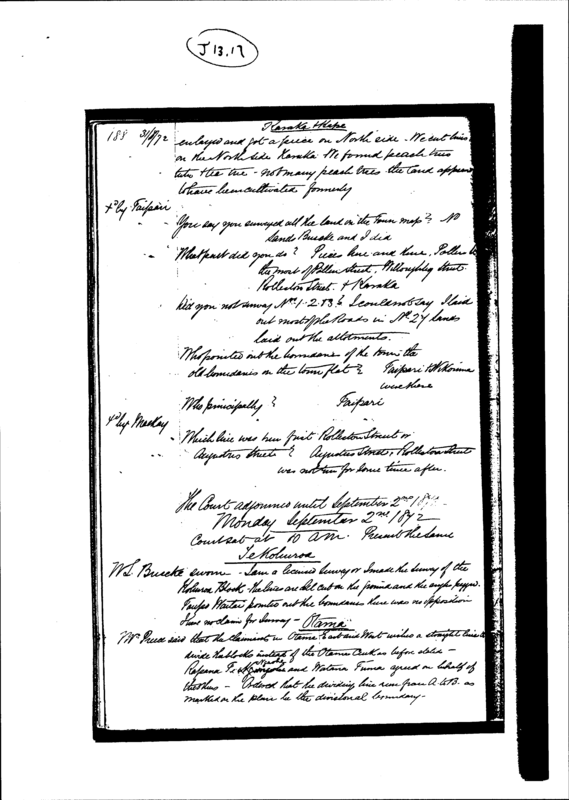 J 13.17
188 31/8/72 Karaka & Kape
enlarged and got a piece on North side - We cut lines
on the North side Karaka We found peach trees
titu tea tree - not many peach trees the land appears
to have been cultivated formerly
Xd by Taipari
You say you surveyed all the land on the Town map? No
Land Buscke and I did
What part did you do? Pieces here and there, Pollens
the most of Pollen Street, Willoughby Street
Rolleston Street & Karaka
Did you not survey Nos 1. 2. & 3? I could not say I laid
out most of the Roads in No 27 lands
laid out the allotments.
Who pointed out the boundaries of the
old boundaries on the town flat? Taipari
were there
Who principally? Taipari
Xd by Mackay
Which line was run first Rolleston Street or
Augustus Street? Augustus Street, Rolleston Street
was not run for some time after.
The Court adjourned until September 2nd 1872
Monday September 2nd 1872
Court sat at 10 A.M. Present the same
Te Kohuroa
W. L. Buscke sworn - I am a licensed surveyor I made the survey of the
Kohuroa Block - the lines are all cut on the ground and the angles pegged.
pointed out the boundaries there was no opposition
I have no claim for Survey - Otama
Mr Preece said that the claimants in Otama East and West wishes a straight line to
divide the blocks instead of the Otama Creek as before stated -
Rapana Te and Watana Tuma agreed on behalf of
the others - Ordered that the dividing line run from A. to B. as
marked on the plan be the divisional boundary -